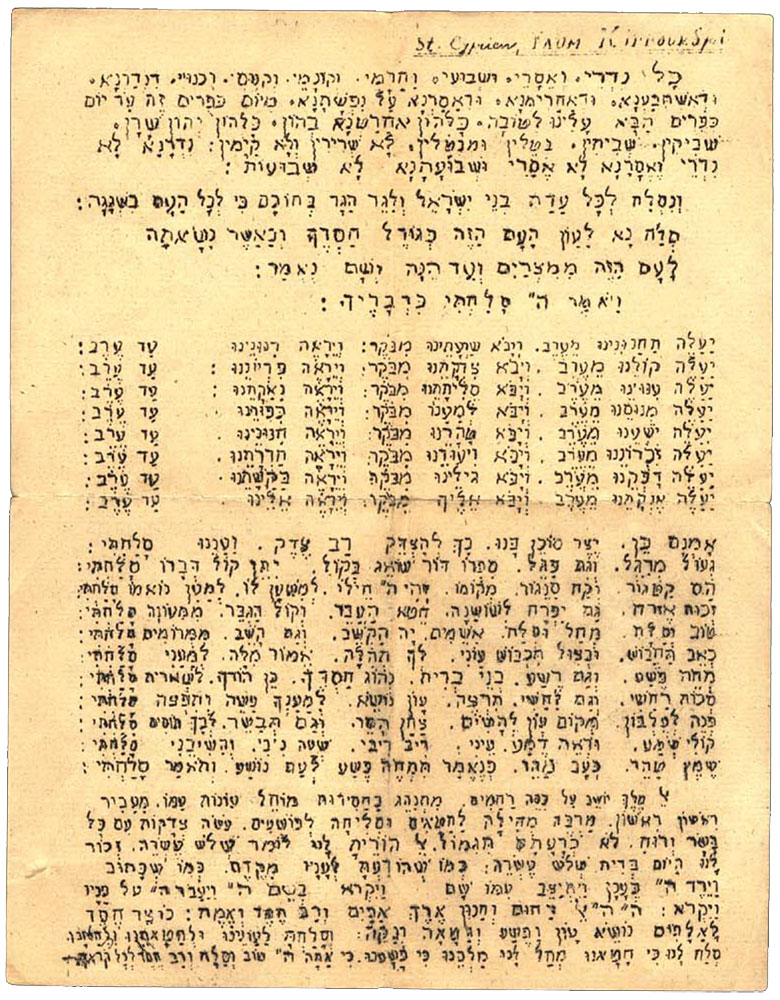 St. Cyprien, FROM
כל נדרי. ואסרי. ושבועי. וחרמי. וקונמי. וקנסי. וכנויי. דנדרנא.
ודאשתבענא. ודאחרימנא. ודאסרנא על נפשתנא. מיום כפרים זה עד יום
כפרים הבא עלינו לטובה. כלהון אחרטנא בהון. כלהון יהון שרן.
שביקין. שביתין. בטלין ומבטלין. לא שרירין ולא קימין: נדרנא לא
נדרי ואסרנא לא אסרי ושבועתנא לא שבועות:
ונסלח לכל עדת בני ישראל ולגר הגר בתוכם כי לכל העם בשגגה:
סלח נא לעון העם הזה כגודל חסדך וכאשר נשאתה
לעם הזה ממצרים ועד הנה ושם נאמר:
ויאמר ה" סלחתי כדבריך:
יעלה תחנונינו מערב. ויבא שועתינו מבקר: ויראה רנונינו עד ערב:
יעלה קולנו מערב. ויבא צדקתנו מבקר: ויראה פדיוננו: עד ערב:
יעלה ענוינו מערב. ויבא סליחתנו מבקר: ויראה נאקתנו: עד ערב:
יעלה מנוסנו מערב. ויבא למענו מבקר: ויראה כפורנו: עד ערב:
יעלה ישענו מערב. ויבא טהרנו מבקר: ויראה חנוננו: עד ערב:
יעלה זכרוננו מערב. ויבא ויעודנו מבקר: ויראה הדרתנו: עד ערב:
יעלה דפקנו מערב. ויבא גילינו מבקר: ויראה בקשתנו: עד ערב:
יעלה אנקתנו מערב. ויבא אליך מבקר: ויראה אלינו. עד ערב:
אמנם כן. יצר סוכן בנו. בך להצדק רב צדק. ועננו סלחתי:
געול מרגל. וגם פגל. ספרו דוד שואג בקול. יתן קול דברו סלחתי:
הס קטגור. וקח סנגור. מקומו. ויהי ה" חילו. למשען לו. למען נואמו סלחתי:
זכות אזרח. גם יפרח לשושנה. חטא העבר. וקול הגבר. ממעונך סלחתי:
טוב וסלח. מחל וסלח. אשמים. יה הקשב. וגם השב. ממרומים סלחתי:
כאב תחבוש. ובצול תכבוש עוני. לך תהלה. אמור מלה. למעני סלחתי:
מחה פשע. וגם רשע. בני ברית. נהוג חסדך. כן הודך. לשארית סלחתי:
סכות רחשי. וגם לחשי. תרצה. עון נושא. למענך עשה ותפצה סלחתי:
פנה לעלבון. מקום עון להשום. צחן הסר. וגם תבשר. לבך חוסים סלחתי:
קולי שמע. וראה דמע. עיני. ריב ריבי. שעה ניבי. והשיבני סלחתי:
שמץ טהר. כעב נהר. כנאמר תמחה פשע לעם נושע. ותאמר סלחתי:
מלך יושב על כסא רחמים. מתנהג בחסידות מוחל עונות עמו. מעביר
ראשון ראשון. מרבה מחילה לחטאים וסליחה לפושעים. עשה צדקות עם כל
בשר ורוח. לא כרעתם תגמול: הורית לנו לומר שלש עשרה. זכור
לנו היום ברית שלש עשרה: כמו שהודעת לעניו מקדם. כמו שכתוב
וירד ה" בענן ויתיצב עמו שם ויקרא בשם ה" ויעבר ה" על פניו
ויקרא: ה" ה" רחום וחנון ארך אפים ורב חסד ואמת: נוצר חסד
לאלפים נושא עון ופשע וחטאה ונקה: וסלחת לעונינו ולחטאתנו ונחלתנו.
סלח לנו כי חטאנו מחל לנו מלכנו כי פשענו. כי אתה ה" טוב וסלח ורב חסד לכל